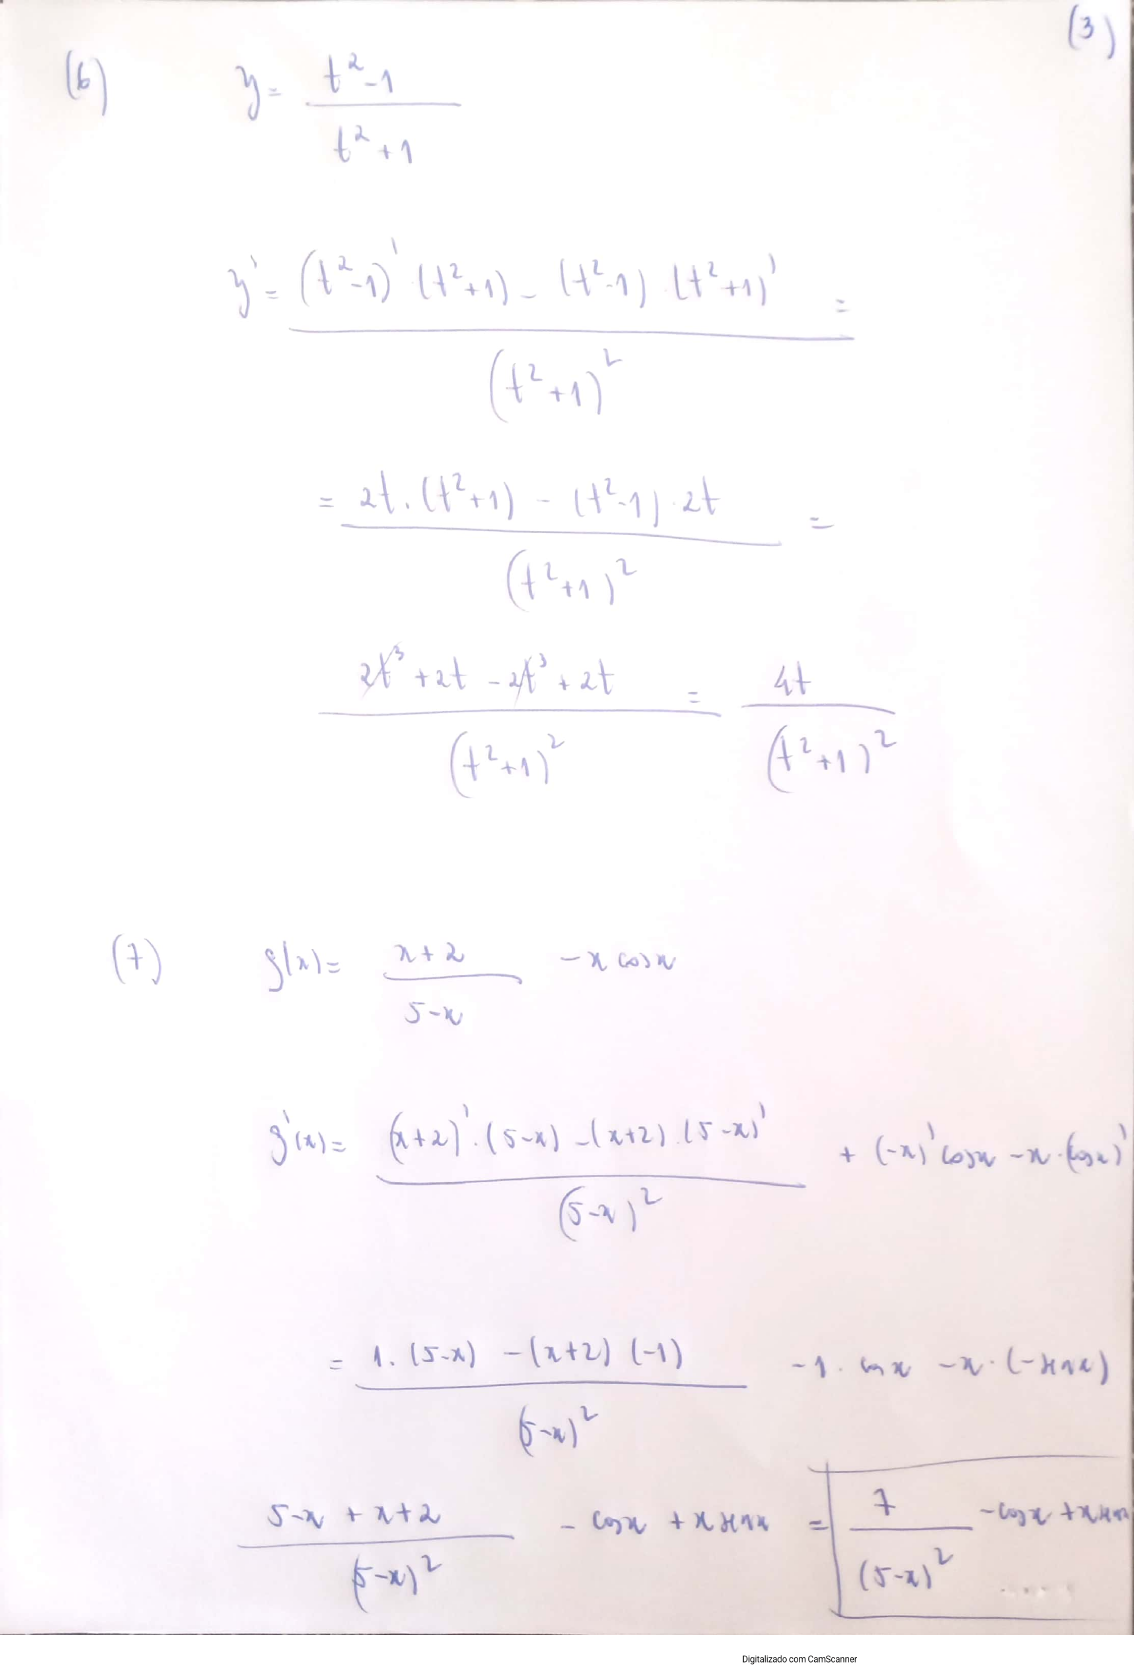 (3)
(6) y = (t²-1)/(t²+1)
y' = ((t²-1)' (t²+1) - (t²-1) · (t²+1)')/(t²+1)² =
= (2t · (t²+1) - (t²-1) · 2t)/(t²+1)² =
(2t³ + 2t - 2t³ + 2t)/(t²+1)² = 4t/(t²+1)²
(7) g(x) = (x+2)/(5-x) - x cosx
g'(x) = ((x+2)' · (5-x) - (x+2) · (5-x)')/(5-x)² + (-x)' cosx - x · (cosx)'
= (1 · (5-x) - (x+2) (-1))/(5-x)² - 1 · cosx - x · (-senx)
(5-x + x+2)/(5-x)² - cosx + x senx = 7/(5-x)² - cosx + x sen
Digitalizado com CamScanner